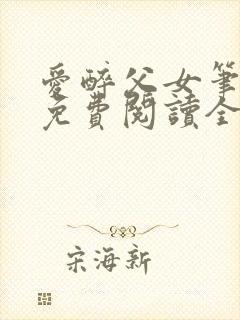 愛醉父女筆
免費閱讀全
宋海新